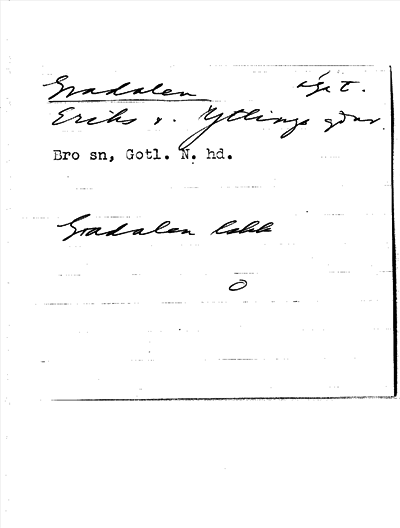 Gradalen ägit.
Eriks o. Yttings gdar.
Bro sn, Gotl. N. hd.
Gradalen lokk
O